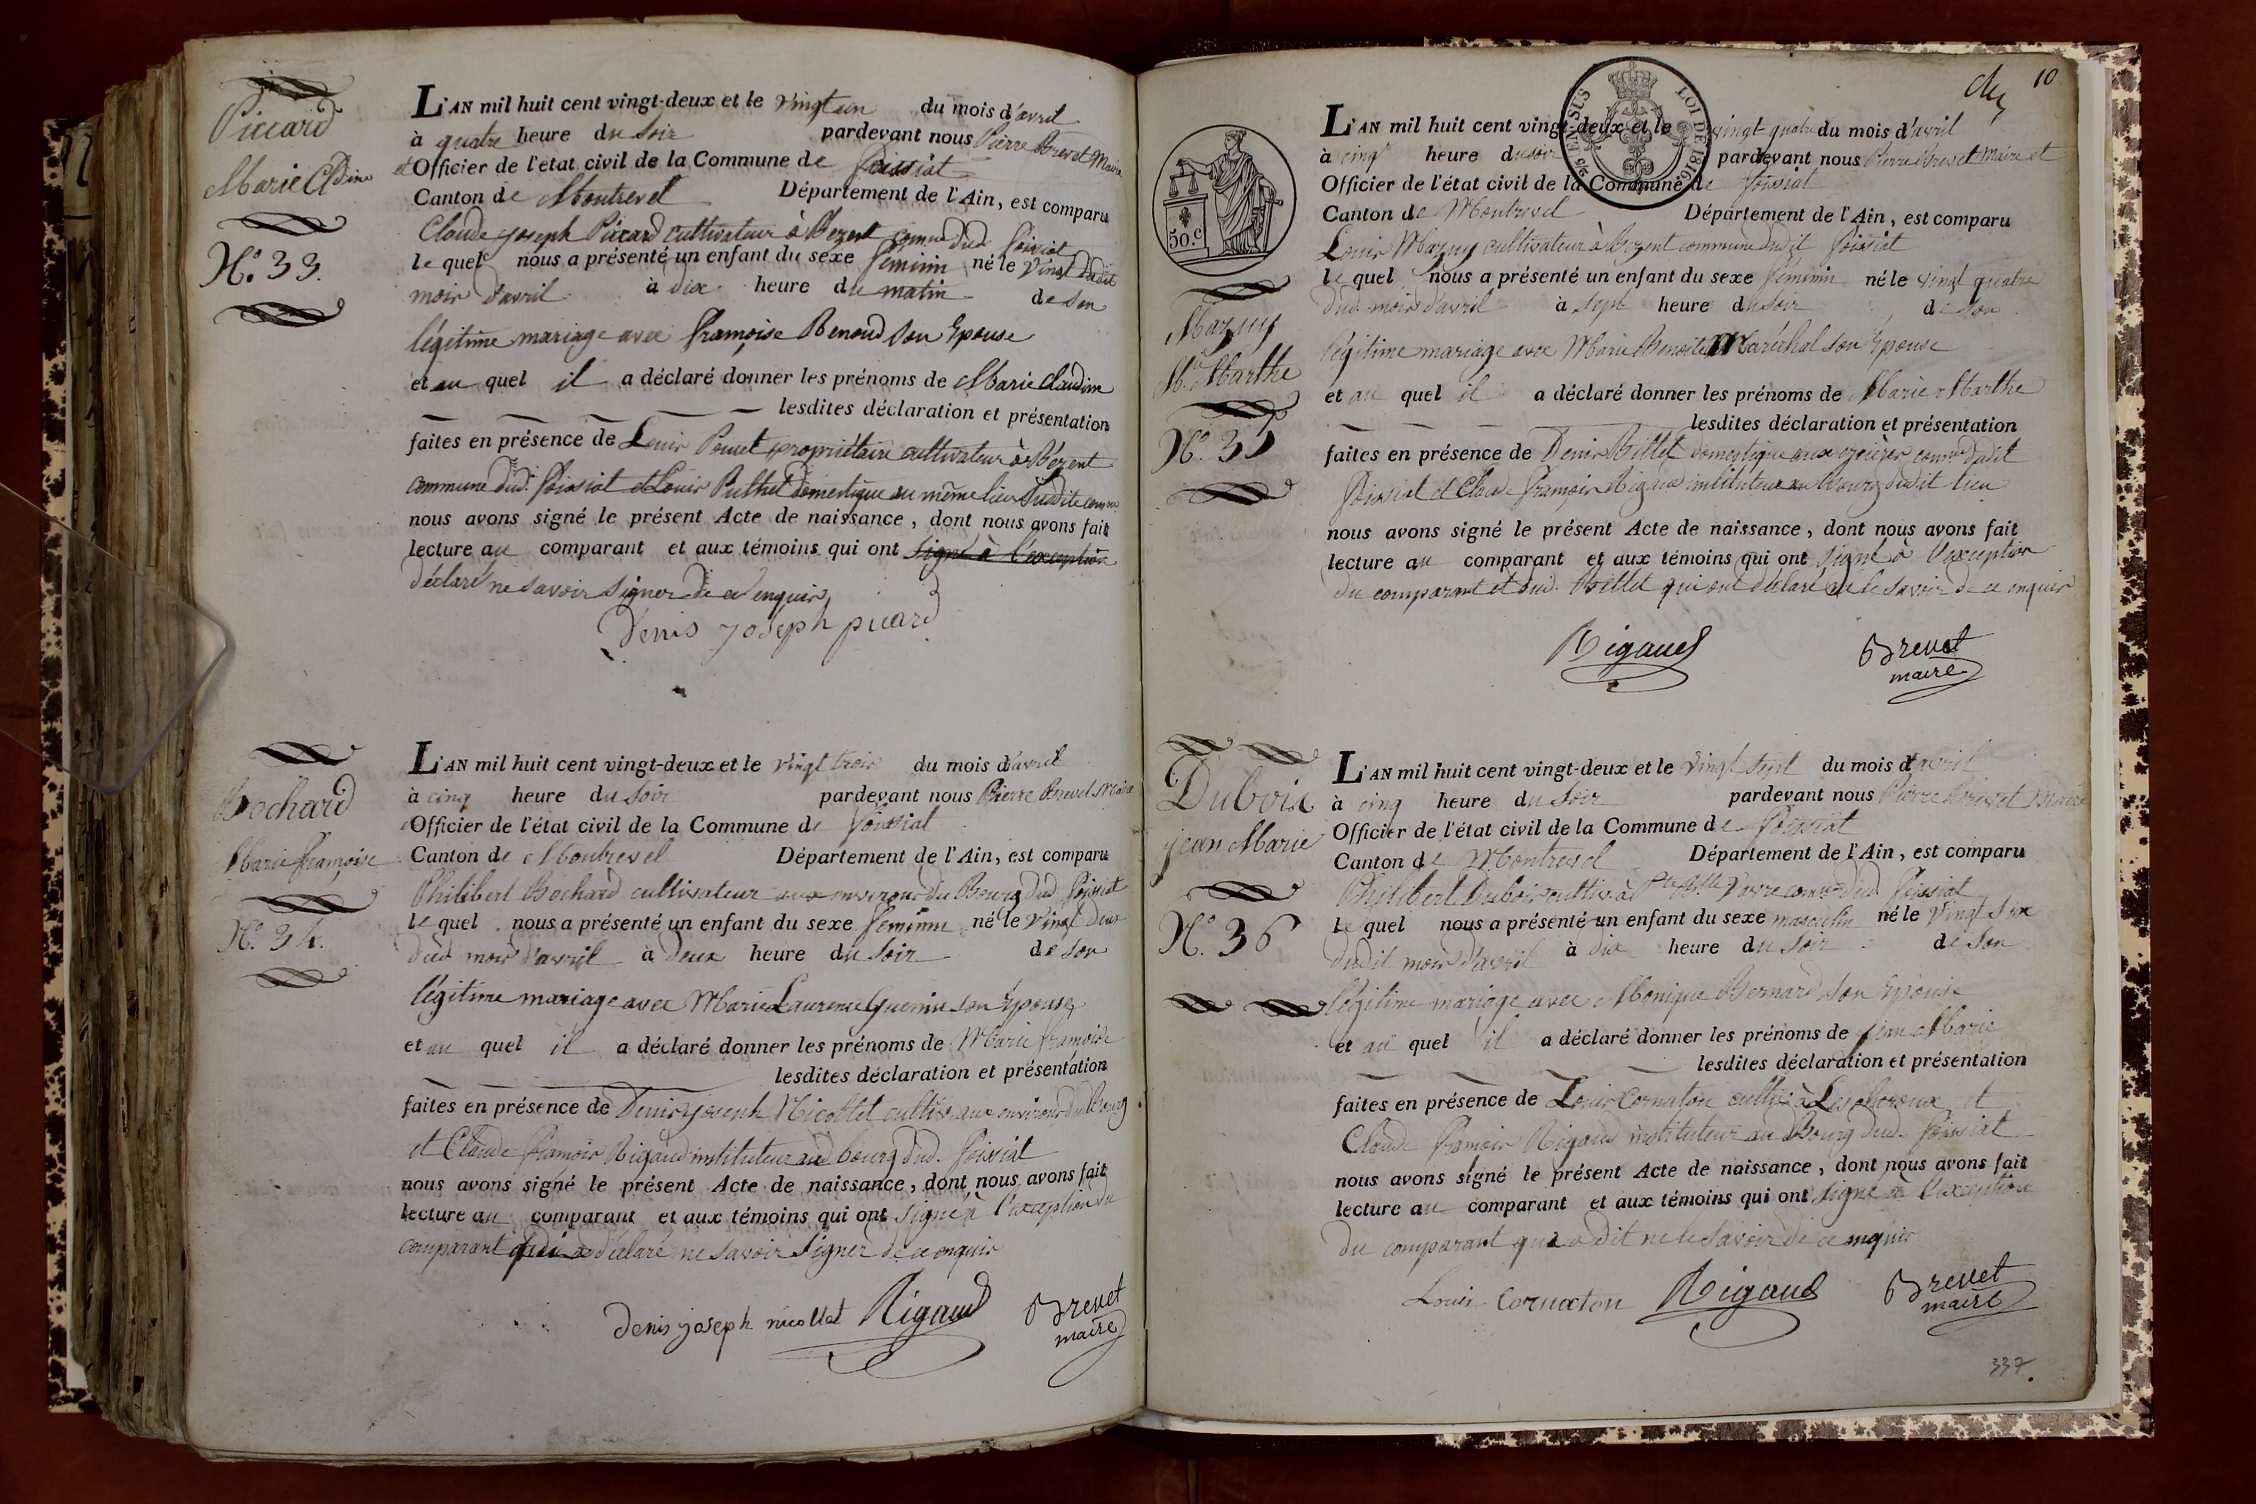 Piccard
Marie Cldine
N.º 33.
L'AN mil huit cent vingt-deux et le vingt un du mois d'avril
à quatre heure du soir pardevant nous Pierre Brevet Maire
et Officier de l'état civil de la Commune de Foissiat
Canton de Montrevel Département de l'Ain, est comparu
Claude joseph Picard cultivateur à Bezent commune dud. Foissiat
le quel nous a présenté un enfant du sexe féminin né le vingt dudit
mois d'avril à dix heure du matin de son
légitime mariage avec françoise Renoud son Epouse
et au quel il a déclaré donner les prénoms de Marie Claudine
lesdites déclaration et présentation
faites en présence de Louis Poncet propriétaire cultivateur à Bézent
commune dud. Foissiat et Louis Puthet domestique au même lieu susdite comm
nous avons signé le présent Acte de naissance, dont nous avons fait
lecture au comparant et aux témoins qui ont signé à l'exception
déclaré ne savoir signer de ce enquis
Denis joseph picard
Bochard
Marie françoise
N.º 34.
L'AN mil huit cent vingt-deux et le vingt trois du mois d'avril
à cinq heure du soir pardevant nous Pierre Brevet Maire
et Officier de l'état civil de la Commune de Foissiat
Canton de Montrevel Département de l'Ain, est comparu
Philibert Bochard cultivateur aux environs du Bourg dud. Foissiat
le quel nous a présenté un enfant du sexe féminin né le vingt deux
dud. mois d'avril à deux heure du soir de son
légitime mariage avec Marie Laurence Guenin son Epouse
et au quel il a déclaré donner les prénoms de Marie françoise
lesdites déclaration et présentation
faites en présence de Denis joseph Nicollet cultiv. aux environs du Bourg
et Claude françois Rigaud instituteur au bourg dud. Foissiat
nous avons signé le présent Acte de naissance, dont nous avons fait
lecture au comparant et aux témoins qui ont signé à l'exception du
comparant qui a déclaré ne savoir signer de ce enquis
Denis joseph nicollet Rigaud Brevet
maire
10
5 EN SUS
LOI DE 1816
50.c
Mazuy
M.ie Marthe
N.º 35
L'AN mil huit cent vingt-deux et le vingt quatre du mois d'avril
à cinq heure du soir pardevant nous Pierre Brevet Maire et
Officier de l'état civil de la Commune de Foissiat
Canton de Montrevel Département de l'Ain, est comparu
Louis Mazuy cultivateur à Bezent commune dudit Foissiat
le quel nous a présenté un enfant du sexe féminin né le vingt quatre
dud. mois d'avril à sept heure du soir de son
légitime mariage avec Marie Benoite Maréchal son Epouse
et au quel il a déclaré donner les prénoms de Marie Marthe
lesdites déclaration et présentation
faites en présence de Denis Billet domestique aux comm. dudit
Foissiat et Claude françois Rigaud instituteur au Bourg dudit lieu
nous avons signé le présent Acte de naissance, dont nous avons fait
lecture au comparant et aux témoins qui ont signé à l'exception
du comparant et dud. Billet qui ont déclaré ne le savoir de ce enquis
Rigaud Brevet
maire
Dubois
jean Marie
N.º 36
L'AN mil huit cent vingt-deux et le vingt sept du mois d'avril
à cinq heure du soir pardevant nous Pierre Brevet Maire
Officier de l'état civil de la Commune de Foissiat
Canton de Montrevel Département de l'Ain, est comparu
Philibert Dubois cultiv. à comm. dud. Foissiat
le quel nous a présenté un enfant du sexe masculin né le vingt six
dudit mois d'avril à dix heure du soir de son
légitime mariage avec Monique Bernard son Epouse
et au quel il a déclaré donner les prénoms de jean Marie
lesdites déclaration et présentation
faites en présence de Louis Cornaton cultiv. à et
Claude françois Rigaud instituteur au Bourg dud. Foissiat
nous avons signé le présent Acte de naissance, dont nous avons fait
lecture au comparant et aux témoins qui ont signé à l'exception
du comparant qui a dit ne le savoir de ce enquis
Louis Cornaton Rigaud Brevet
maire
337.